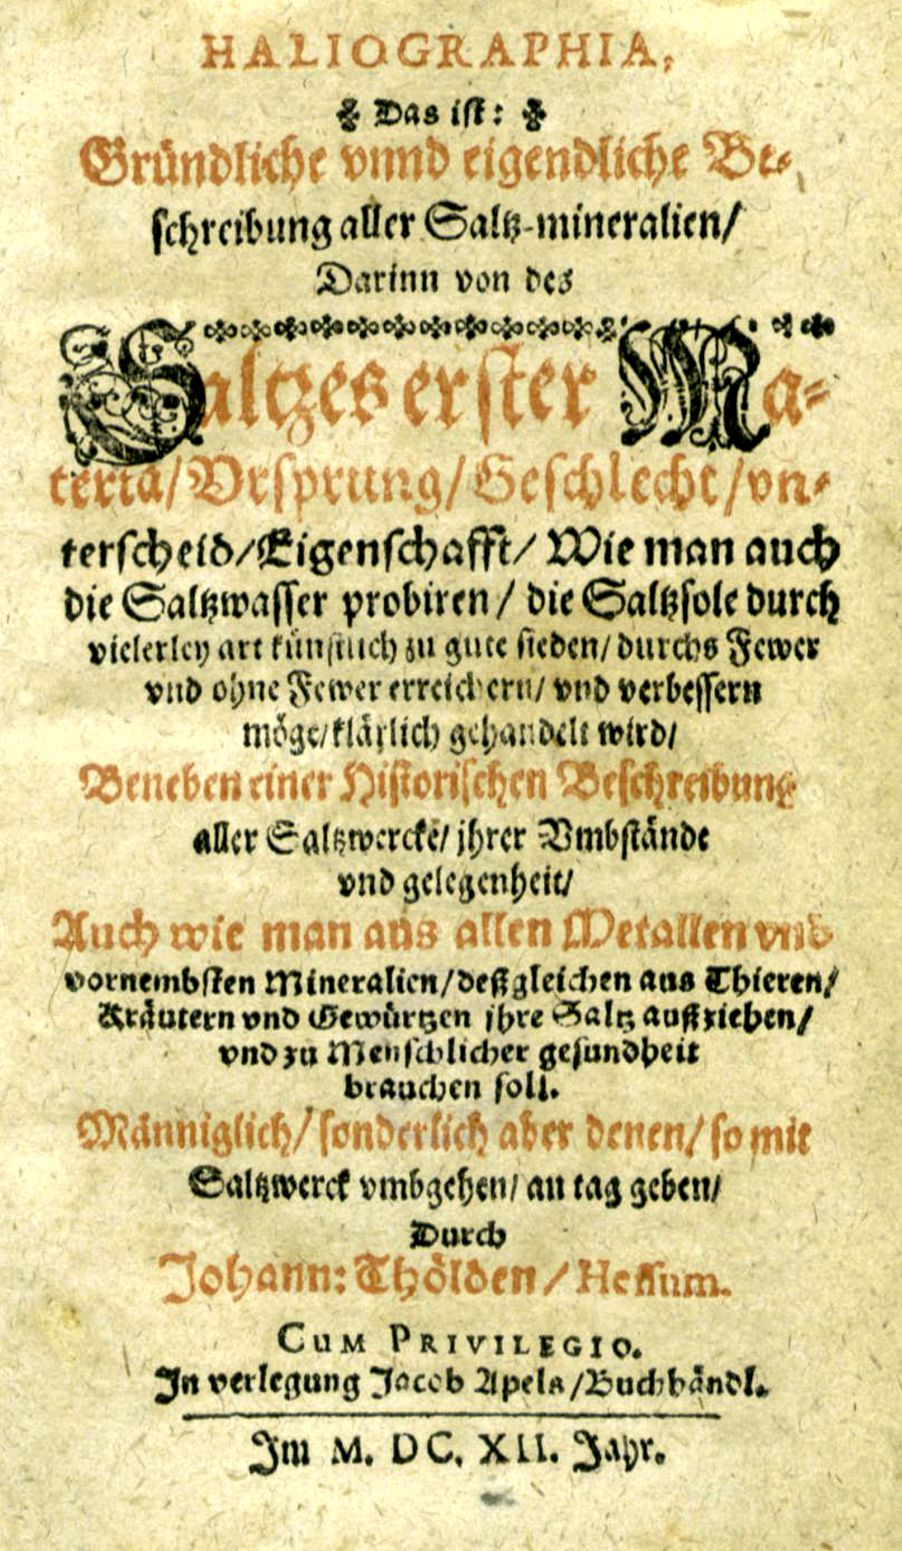 HALIOGRAPHIA,
Das ist:
Gründliche vnnd eigendliche Be-
schreibung aller Saltz-mineralien/
Darinn von des
Saltzes erster Ma-
teria/Vrsprung/Geschlecht/vn-
terscheid/Eigenschafft/Wie man auch
die Saltzwasser probiren/die Saltzsole durch
vielerley art künstlich zu gute sieden/durchs Fewer
vnd ohne Fewer erreichern/vnd verbessern
möge/klärlich gehandelt wird/
Beneben einer Historischen Beschreibung
aller Saltzwercke/jhrer Vmbstände
vnd gelegenheit/
Auch wie man aus allen Metallen vnd
vornembsten Mineralien/deßgleichen aus Thieren/
Kräutern vnd Gewürtzen jhre Saltz außziehen/
vnd zu Menschlicher gesundheit
brauchen soll.
Männiglich/sonderlich aber denen/so mit
Saltzwerck vmbgehen/an tag geben/
Durch
Johann: Thölden/Hessum.
CUM PRIVILEGIO.
In verlegung Jacob Apels/Buchhändl.
Im M. DC. XII. Jahr.